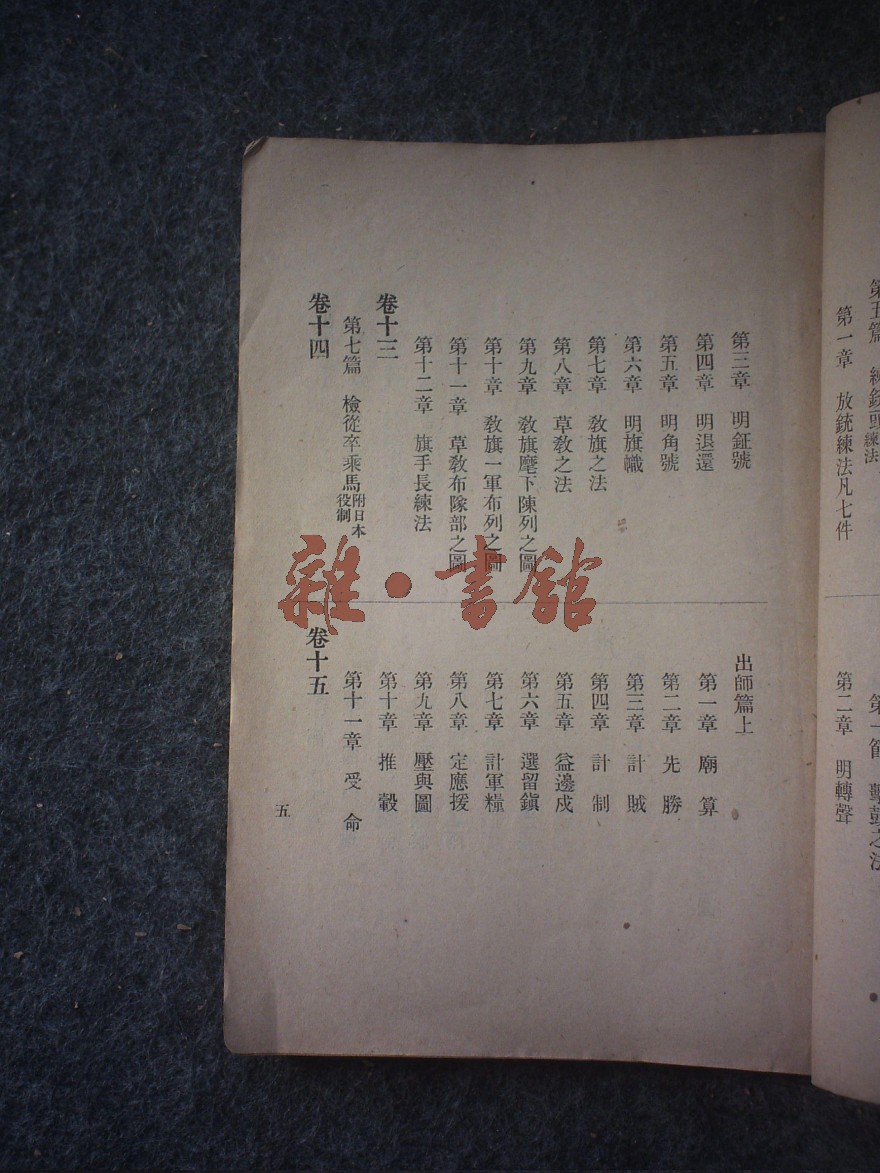 第一章 放銃練法凡七件
第二章 明轉聲
第三章 明鉦號
第四章 明退還
第五章 明角號
第六章 明旗幟
第七章 教旗之法
第八章 草教之法
第九章 教旗麾下陳列之圖
第十章 教旗一軍布列之圖
第十一章 草教布隊部之圖
第十二章 旗手長練法
卷十三
第七篇 檢從卒乘馬附日本役制
卷十四
出師篇上
第一章 廟算
第二章 先勝
第三章 計賊
第四章 計制
第五章 益邊戍
第六章 選留鎮
第七章 計軍糧
第八章 定應援
第九章 壓與圖
第十章 推轂
第十一章 受命
卷十五
五
雜·書館